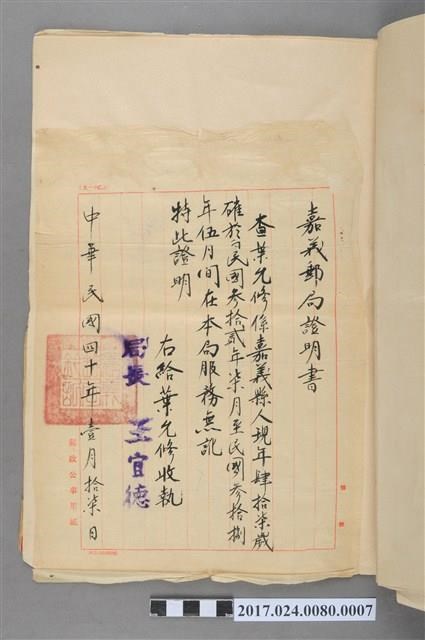 嘉義郵局證明書
查葉允修係嘉義縣人現年肆拾柒歲
確於民國叁拾貳年柒月至民國叁拾捌
年伍月間在本局服務無訛
特此證明
右給葉允修收執
局長 宜德
中華民國四十年壹月拾柒日
郵政公事用紙
2017.024.0080.0007